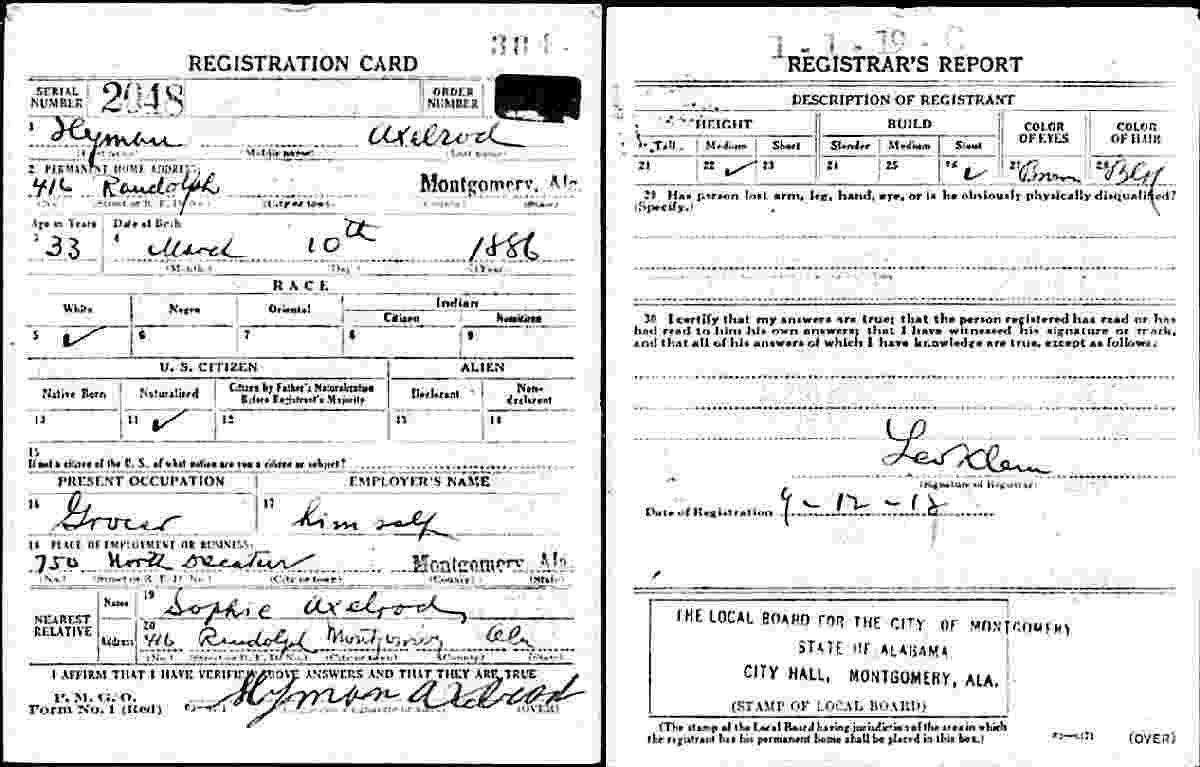 REGISTRATION CARD
SERIAL NUMBER 2948 ORDER NUMBER
1 Hyman Axelrod
(First name) (Middle name) (Last name)
2 PERMANENT HOME ADDRESS:
416 Randolph Montgomery, Ala.
(No.) (Street or R. F. D. No.) (City or town) (County) (State)
Age in Years Date of Birth
3 33 4 March 10th 1886
(Month.) (Day.) (Year.)
RACE
White Negro Oriental Indian
Citizen Noncitizen
5 ✓ 6 7 8 9
U. S. CITIZEN ALIEN
Native Born Naturalized Citizen by Father's Naturalization Before Registrant's Majority Declarant Non-declarant
10 11 ✓ 12 13 14
15
If not a citizen of the U. S. of what nation are you a citizen or subject?
PRESENT OCCUPATION EMPLOYER'S NAME
16 Grocer 17 him self
18 PLACE OF EMPLOYMENT OR BUSINESS:
750 North Decatur Montgomery, Ala.
(No.) (Street or R. F. D. No.) (City or town) (County) (State)
NEAREST RELATIVE
Name 19 Sophie Axelrod
Address 20 416 Randolph Montgomery Ala
(No.) (Street or R. F. D. No.) (City or town) (County) (State)
I AFFIRM THAT I HAVE VERIFIED ABOVE ANSWERS AND THAT THEY ARE TRUE
P. M. G. O.
Form No. 1 (Red) Hyman Axelrod (OVER)
REGISTRAR'S REPORT
DESCRIPTION OF REGISTRANT
HEIGHT BUILD COLOR OF EYES COLOR OF HAIR
Tall Medium Short Slender Medium Stout
21 22 ✓ 23 24 25 26 ✓ 27 Brown 28
29 Has person lost arm, leg, hand, eye, or is he obviously physically disqualified?
(Specify.)
30 I certify that my answers are true; that the person registered has read or has
had read to him his own answers; that I have witnessed his signature or mark,
and that all of his answers of which I have knowledge are true, except as follows:
(Signature of Registrar)
Date of Registration 9-12-18
THE LOCAL BOARD FOR THE CITY OF MONTGOMERY
STATE OF ALABAMA
CITY HALL, MONTGOMERY, ALA.
(STAMP OF LOCAL BOARD)
(The stamp of the Local Board having jurisdiction of the area in which
the registrant has his permanent home shall be placed in this box.)
(OVER)